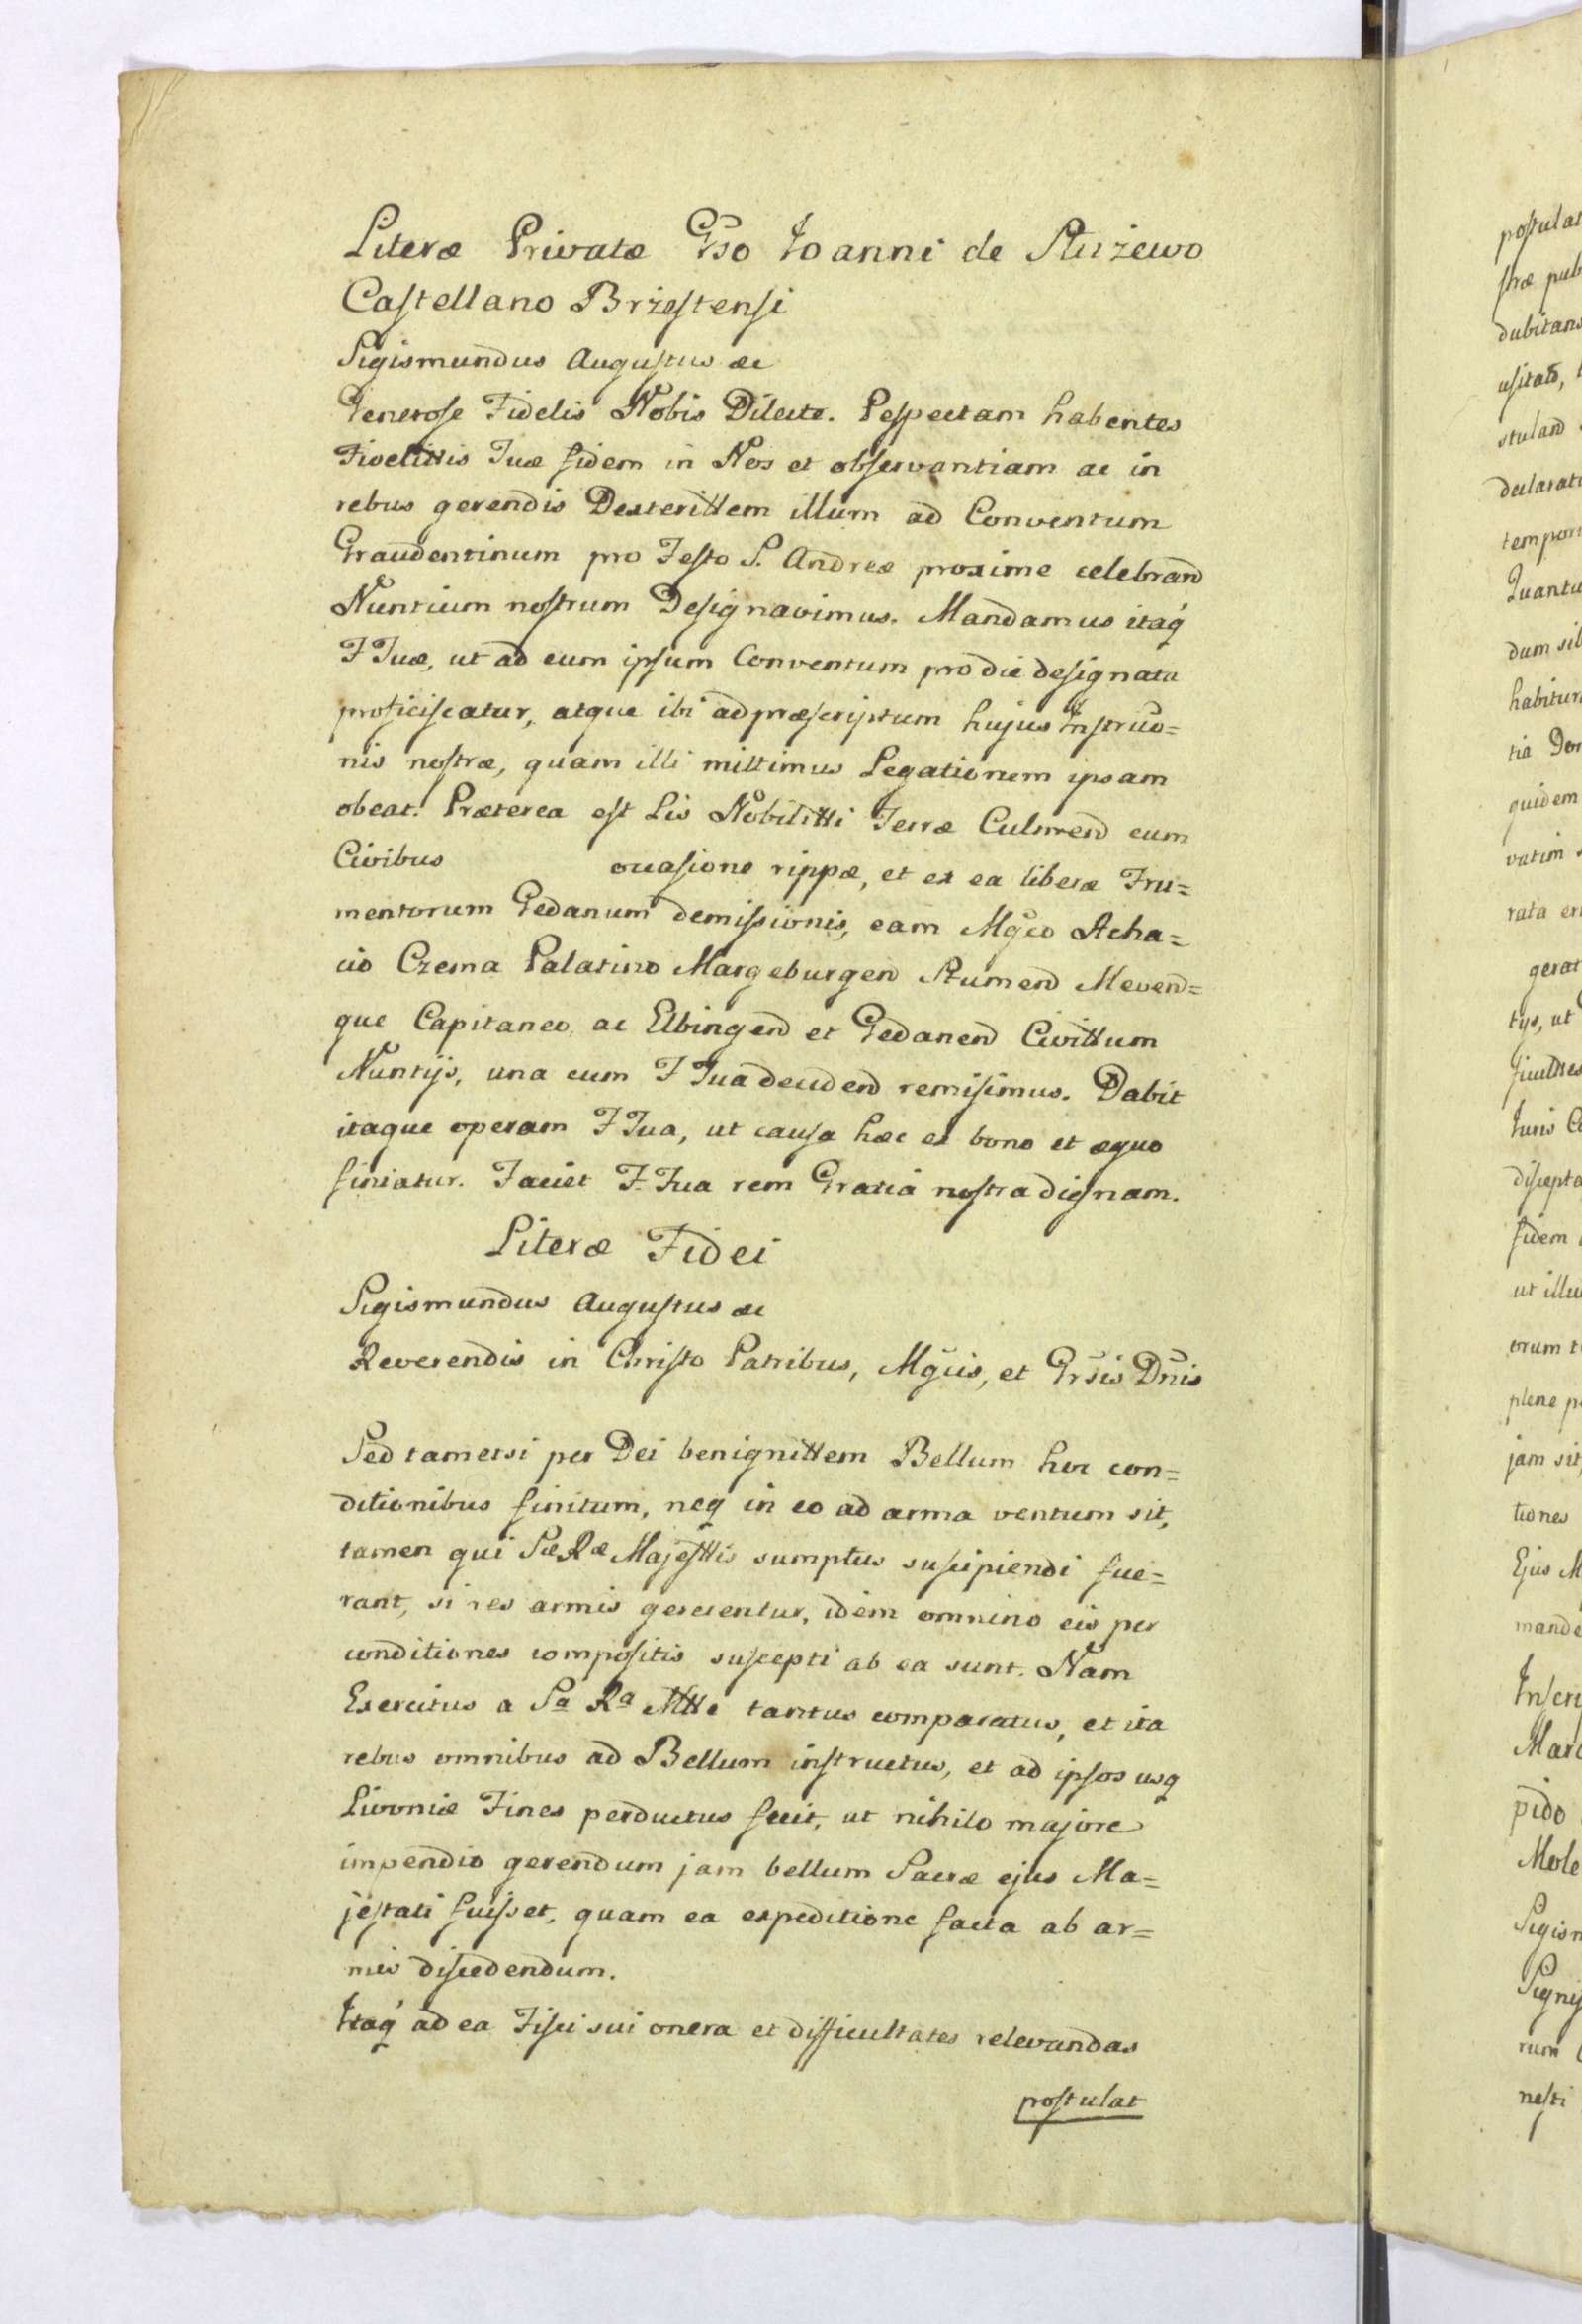 Literæ Privatæ Gso Ioanni de Slużewo
Castellano Brzestensi
Sigismundus Augustus &c
Generose Fidelis Nobis Dilecte. Pespectam habentes
Fidelittis Tuæ fidem in Nos et observantiam ac in
rebus gerendis Dexterittem illum ad Conventum
Graudentinum pro Festo S. Andreæ proxime celebrand
Nuntium nostrum Designavimus. Mandamus itaq
F Tuæ, ut ad eum ipsum Conventum pro die designata
proficiscatur, atque ibi ad præscriptum hujus Instruo=
nis nostræ, quam illi mittimus Legationem ipsam
obeat. Præterea est Lis Nobilitti Terræ Culmend cum
Civibus occasione rippæ, et ex ea liberæ Fru=
mentorum Gedanum demissionis, eam Mgco Acha=
cio Czema Palatino Margeburgen Stumend Mevend=
que Capitaneo ac Elbingend et Gedanend Civittum
Nuntijs, una cum F Tua decidend remisimus. Dabit
itaque operam F Tua, ut causa hæc ex bono et æquo
finiatur. Faciet F. Tua rem Gratia nostra dignam.
Literæ Fidei
Sigismundus Augustus &c
Reverendis in Christo Patribus, Mgcis, et Grsis Dnis
Sed tametsi per Dei benignittem Bellum hoc con=
ditionibus finitum, neq in eo ad arma ventum sit,
tamen qui Sæ Ræ Majesttis sumptus suscipiendi fue=
rant, si res armis gererentur, idem omnino eis per
conditiones compositis suscepti ab ea sunt. Nam
Exercitus a Sa Ra Mtte tantus comparatus, et ita
rebus omnibus ad Bellum instructus, et ad ipsos usq
Livoniæ Fines perductus fecit, ut nihilo majore
impendio gerendum jam bellum Sacræ ejus Ma=
jestati fuisset, quam ea expeditione facta ab ar=
mis discedendum.
Itaq ad ea Fisci sui onera et difficultates relevandas
postulat
postulat
stræ pub
dubitans
usitatо,
stuland
declarati
tempori
Quantu
dum sib
habituri
tia Dom
quidem
vatim s
rata eri
gerat
tys, ut
ficulttes
Iuris C
discepta
fidem
ut illu
orum t
plene p
jam sit,
tiones
Ejus M
mande
Inscri
Marc
pido
Mole
Sigism
Signif
rum
nesti